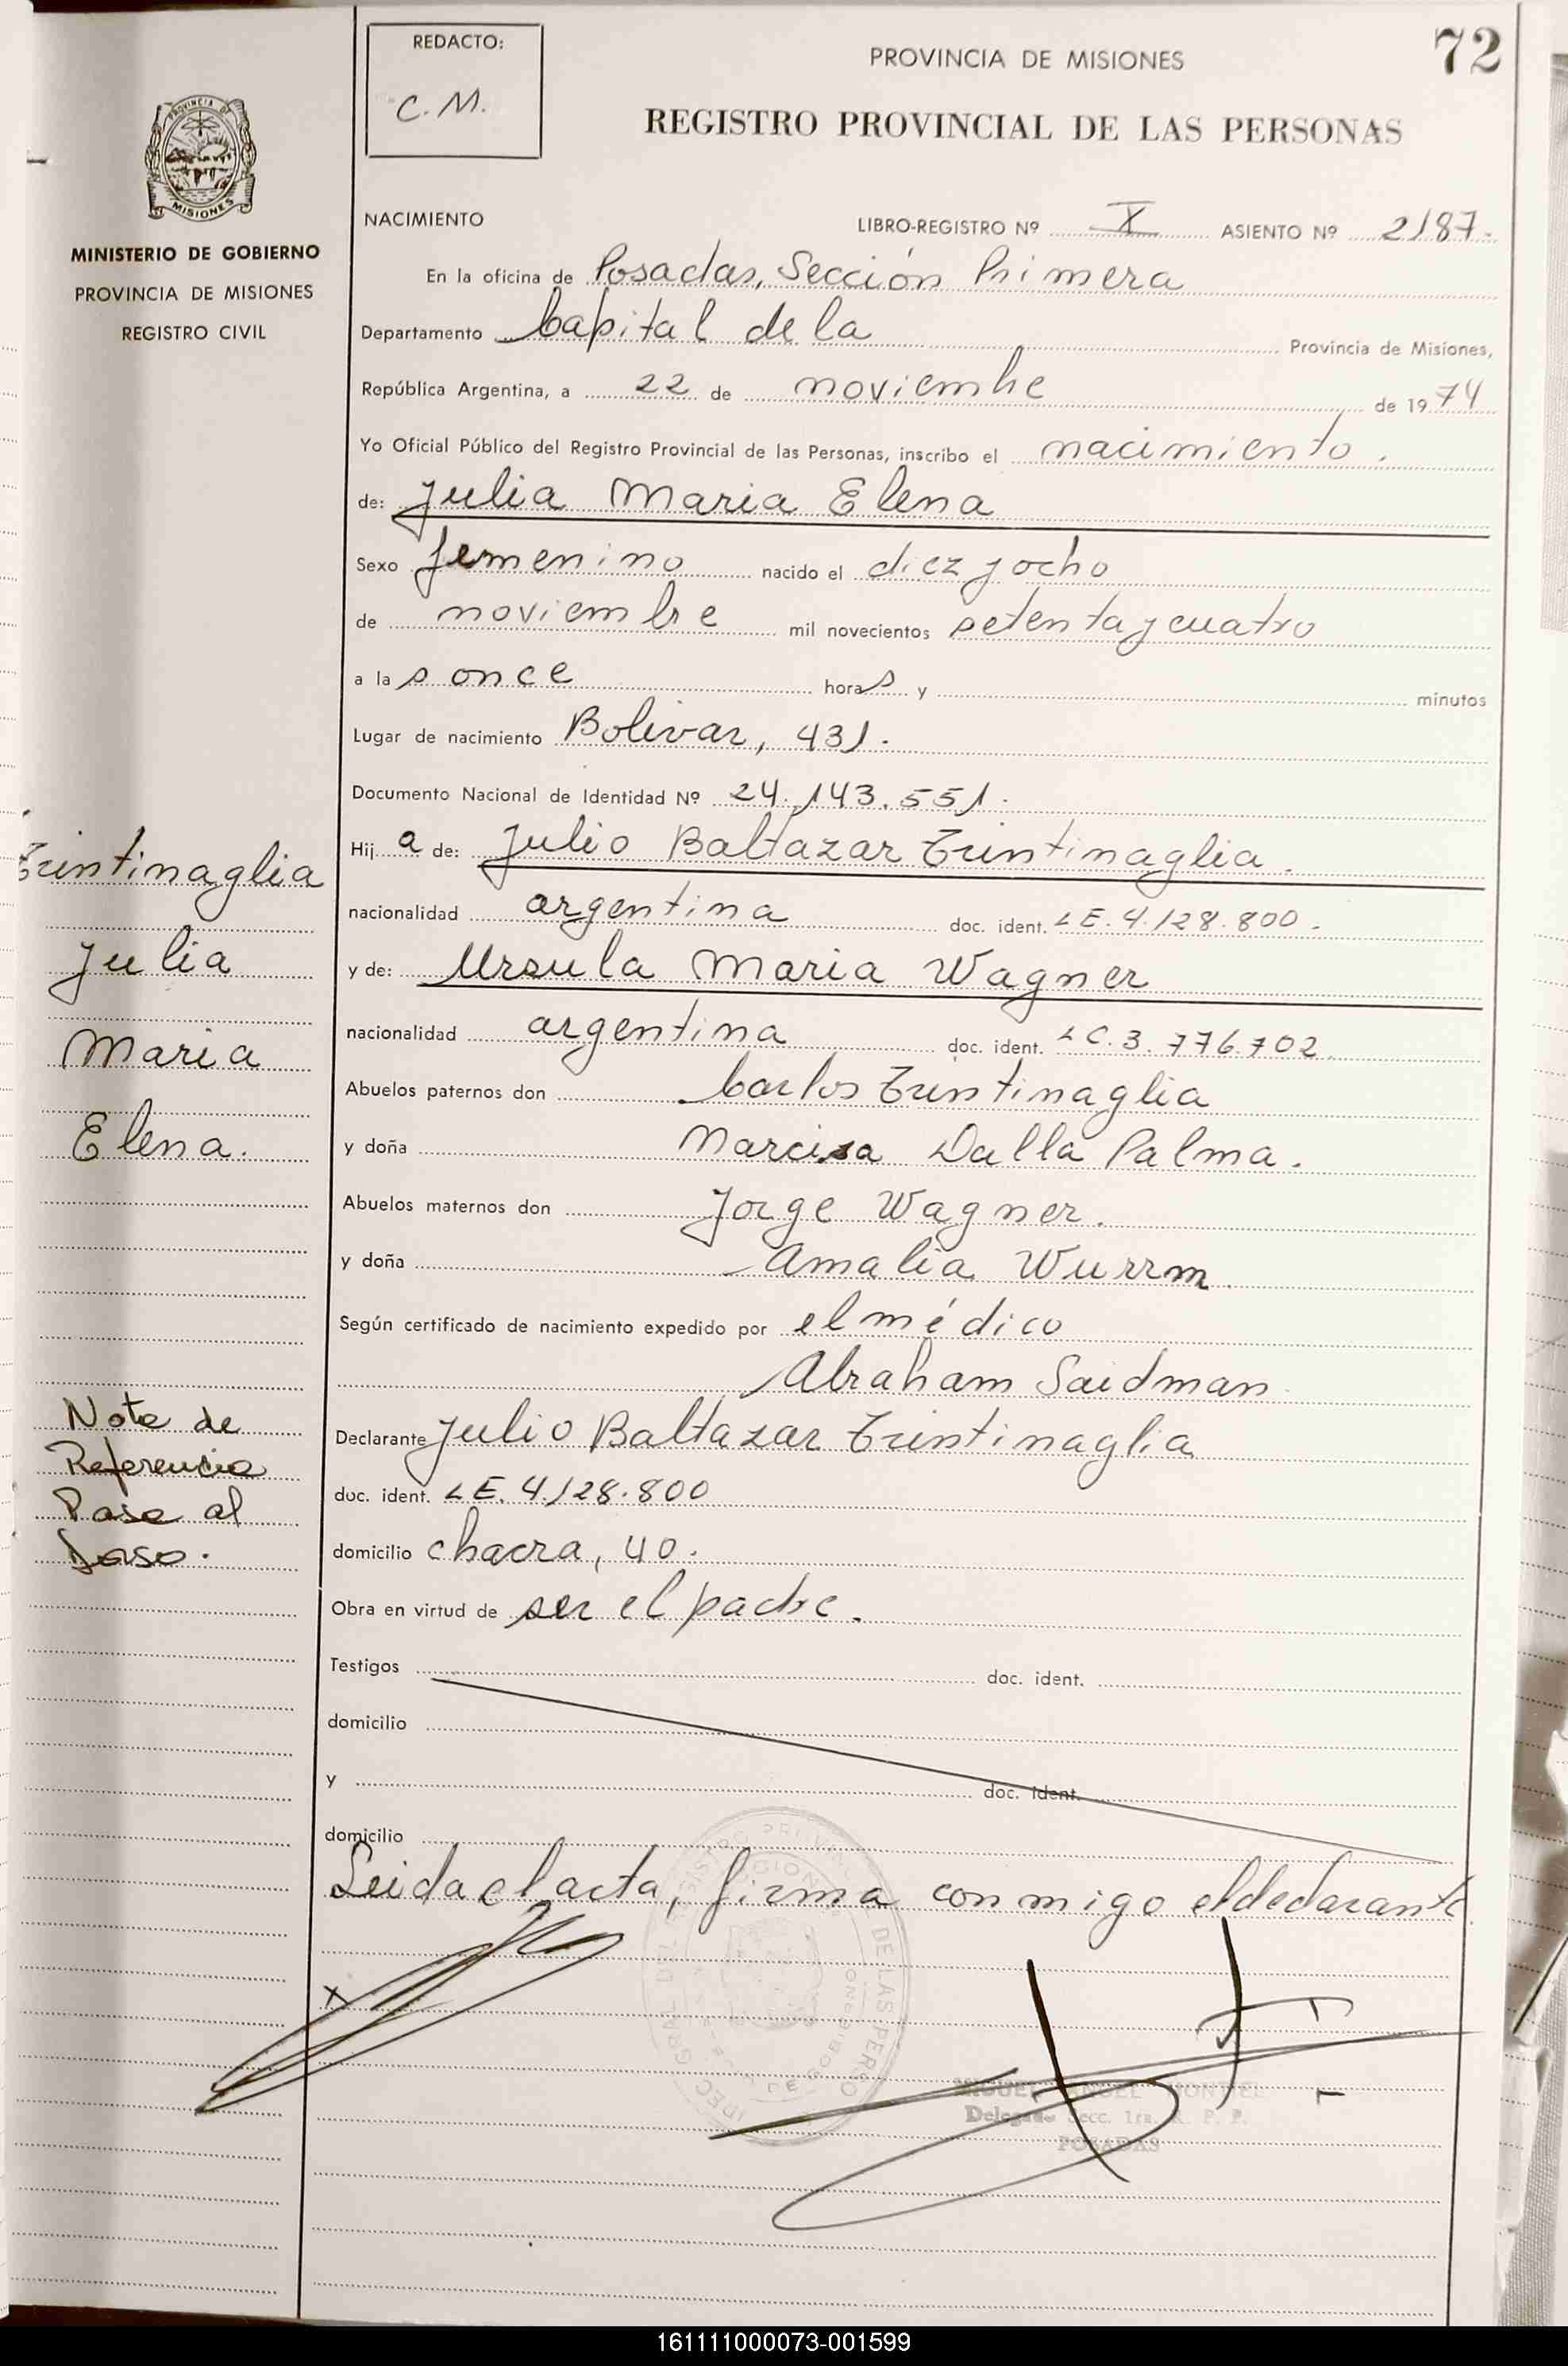 72
REDACTO:
C.M.
PROVINCIA DE MISIONES
REGISTRO PROVINCIAL DE LAS PERSONAS
PROVINCIA DE
MISIONES
MINISTERIO DE GOBIERNO
PROVINCIA DE MISIONES
REGISTRO CIVIL
NACIMIENTO LIBRO-REGISTRO Nº X ASIENTO Nº 2187.
En la oficina de Posadas, Sección Primera
Departamento Capital de la Provincia de Misiones,
República Argentina, a 22 de noviembre de 1974
Yo Oficial Público del Registro Provincial de las Personas, inscribo el nacimiento.
de: Julia Maria Elena
Sexo femenino nacido el diez y ocho
de noviembre mil novecientos setenta y cuatro
a las once horas y minutos
Lugar de nacimiento Bolivar, 431.
Documento Nacional de Identidad Nº 24.143.551.
Hija de: Julio Baltazar Trintinaglia.
nacionalidad argentina doc. ident. LE. 4.128.800.
y de: Ursula Maria Wagner
nacionalidad argentina doc. ident. LC. 3.776.702
Abuelos paternos don Carlos Trintinaglia
y doña Marcisa Dalla Palma.
Abuelos maternos don Jorge Wagner.
y doña Amalia Wurrm.
Según certificado de nacimiento expedido por el médico
Abraham Saidman
Declarante Julio Baltazar Trintinaglia
doc. ident. LE. 4.128.800
domicilio chacra, 40.
Obra en virtud de ser el padre.
Testigos doc. ident.
domicilio
y doc. ident.
domicilio
Leida el acta, firma conmigo el declarante.
Trintinaglia
Julia
Maria
Elena.
Nota de
Referencia
Pase al
Dorso.
x
MIGUEL ANGEL MONTIEL
Delegado Secc. 1ra. R. P. P.
POSADAS
161111000073-001599